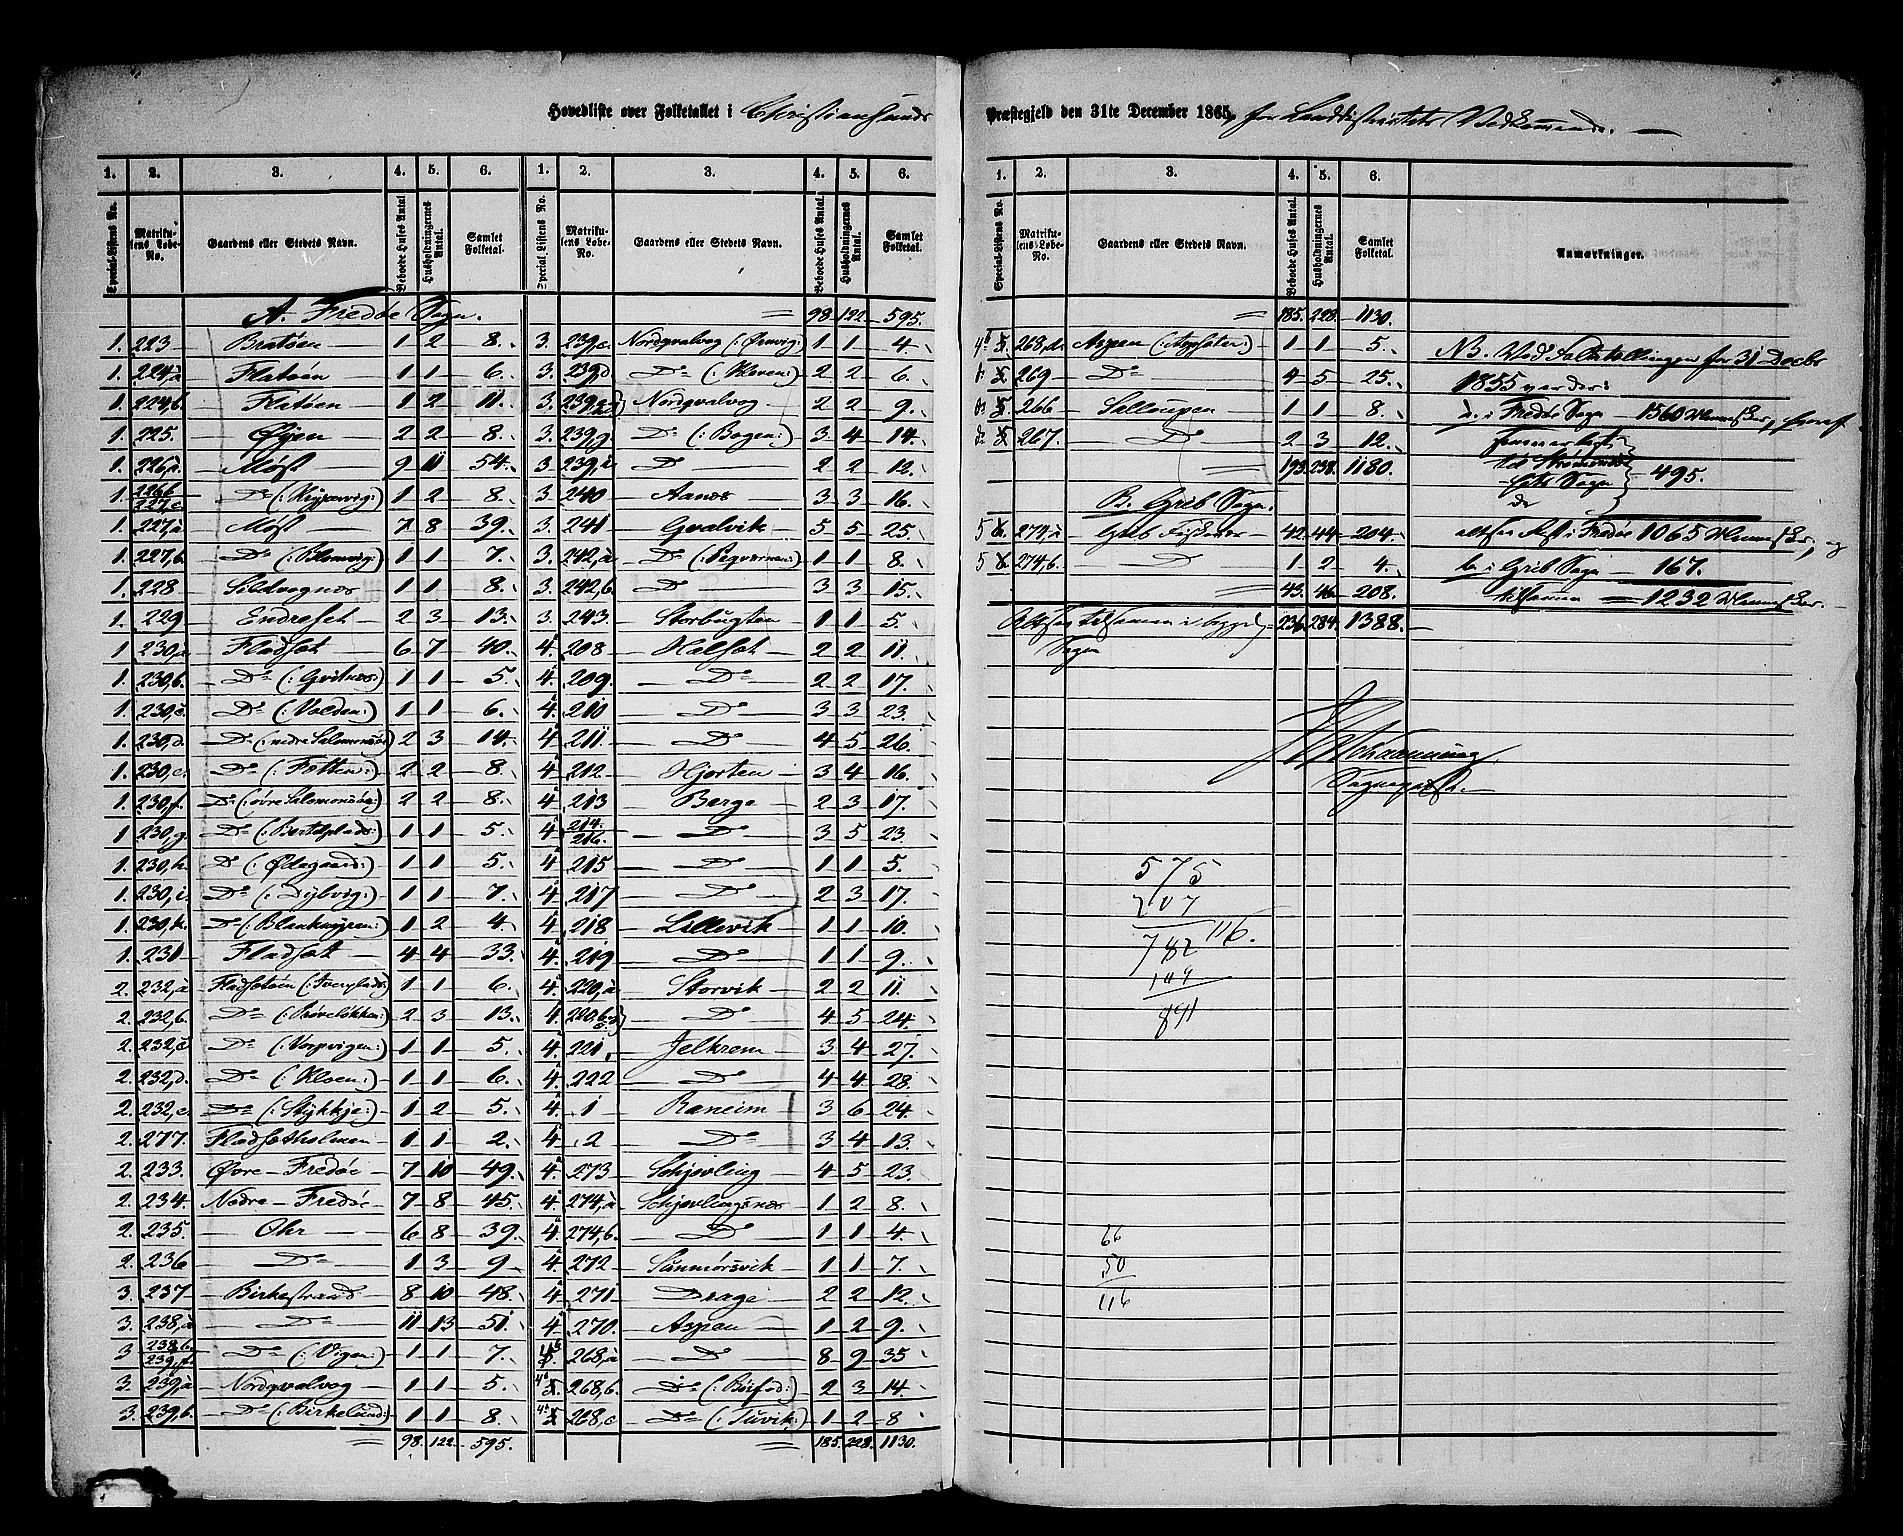 Hovedliste over Folketallet i Christiansunds Præstegjeld den 31te December 1865, for Landdistriktets Vedkommende. —
1. 2. 3. 4. 5. 6. 1. 2. 3. 4. 5. 6.
Special-Listens No. Matrikulens Løbe-No. Gaardens eller Stedets Navn. Beboede Huses Antal Husholdningernes Antal. Samlet Folketal. Special Listens No. Matrikulens Løbe-No. Gaardens eller Stedets Navn. Beboede Huses Antal. Husholdningernes Antal. Samlet Folketal.
A. Fredøe Sogn.
1. 223 Bratøen 1 2 8.
1. 224,a Flatøen 1 1 6.
1. 224,b. Flatøen 1 2 11.
1. 225. Øÿen 2 2 8.
1. 226,a. Møst 9 11 54.
1. 226b 227,c D° (: Krÿkervig:) 1 2 8.
1. 227,a Møst 7 8 39.
1. 227,b. D° (: Blomvig:) 1 1 7.
1. 228 Sildvognæs 1 1 8.
1. 229 Endreset 2 3 13.
1. 230,a Fladset 6 7 40.
1. 230,b. D° (: Gvitnæs:) 1 1 5.
1. 230,c. D° (: Volden:) 1 1 6.
1. 230,d. D° (: nedre Salomonsøe) 2 3 14.
1. 230,e. D° (: Fætten:) 2 2 8.
1. 230,f. D° (: øvre Salomonsøe:) 2 2 8.
1 230,g D° (: Bertelplads:) 1 1 5.
1. 230,h. D° (: Ødegaard:) 1 1 5.
1. 230,i. D° (: Dÿbvig:) 1 1 7.
1. 230,k. D° (: Blankmÿren:) 1 2 4.
1. 231 Fladset 4 4 33.
2. 232,a Fladsetøen (: Iverplads:) 1 1 6.
2. 232,b. D° 2 3 13.
2. 232,c D° (: Korpvigen:) 1 1 5.
2. 232,d. D° (: Kloen:) 1 1 6.
2. 232,e D° (: Stÿkkje:) 1 2 5.
2. 277. Fladsetholmen 1 1 2.
2. 233. Øvre Fredøe 7 10 49.
2. 234. Nedre Fredøe 7 8 45.
2. 235. Ohr 6 8 39.
2. 236 D° 1 3 9
3. 237 Birkestrand 8 10 48.
3. 238,a D° 11 13 51.
3 238,b. 239,f. D° (: Vigen:) 1 1 7.
3. 239,a Nordqvalvog 1 1 5.
3. 239,b. D° (: Birkelund:) 1 1 8.
98. 122. 595.
98. 122 595.
3. 239,c. Nordqvalvog (: Ørnvig:) 1 1 4.
3. 239,d D° (: Kleven:) 2 2 6.
3. 239,e Nordqvalvog 2 2 9.
3. 239,g D° (: Bogen:) 3 4 14.
3. 239, D° 2 2 12.
3. 240 Aanes 3 3 16.
3. 241 Gvalvik 5 5 25.
3. 242,a D° 1 1 8.
3. 242,b. D° 3 3 15.
3. 243 Storbugten 1 1 5.
4. 208 Halset 2 2 11.
4. 209. D° 2 2 17.
4. 210 D° 3 3 23.
4. 211. D° 4 5 26.
4. 212. Hjorten 3 4 16.
4. 213 Berge 2 3 17.
4. 214. 216. D° 3 5 23
4. 215 D° 1 1 5.
4. 217 D° 2 3 17.
4. 218 Lillevik 1 1 10.
4. 219 D° 1 1 9.
4. 220,a Storvik 2 2 11.
4. 220,b. D° 4 5 24.
4. 221. Jelkrem 3 4 27.
4. 222 D° 4 4 28.
4. 1 Raneim 3 6 24.
4. 2 D° 3 4 13.
4. 273 Schjevling 4 5 23
4. 274,a Schjevlingsnæs 1 2 8.
4. 274,b. D° 1 1 4.
4. 272 Sunmørsvik 1 1 7.
4. 271 Drage 2 2 12.
4. 270. Aspen 1 2 9.
4b 268,a D° 8 9 35
4b 268,b. D° 2 3 14.
4b 268,c D° (: Tuvik:) 1 2 8
185. 228. 1130.
1. 2. 3. 4. 5. 6.
Special-Listens No. Matrikulens Løbe-No. Gaardens eller Stedets Navn. Beboede Huses Antal. Husholdningernes Antal. Samlet Folketal. Anmærkninger.
185. 228. 1130.
4b 268,d. Aspen 1 1 5.
269 D° 4 5 25.
266 Salloupen 1 1 8.
267. D° 2 3 12.
193. 238. 1180.
B. Grib Sogn.
5 274,a Grib 42 44 204.
5 274,b. D° 1 2 4.
43. 46. 208.
Altsaa tilsammen i begge Sogne 236. 284. 1388.
NB. Ved Folketællingen for 31 Decbr
1855 var der:
a. i Fredøe Sogn 1560 Mennesker, hvoraf
495.
altsaa Rest i Fredøe 1065 Mennesker, og
b. i Grib Sogn 167.
tilsammen 1232 Mennesker.
Sognepræst.
575
207
782 116.
109
891
66
50
116